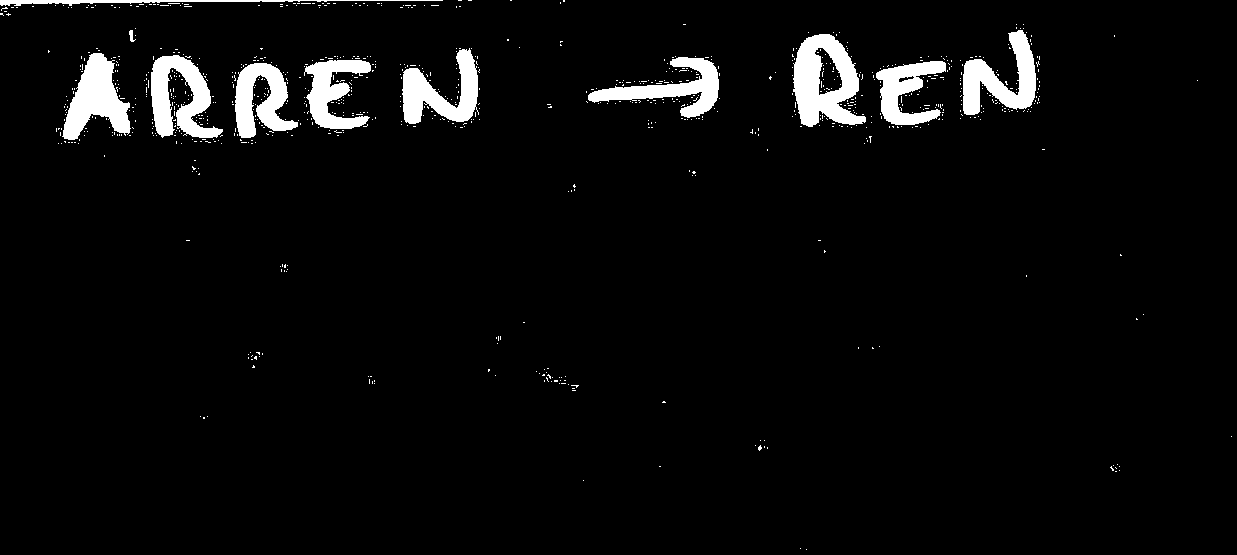 ARREN → REN